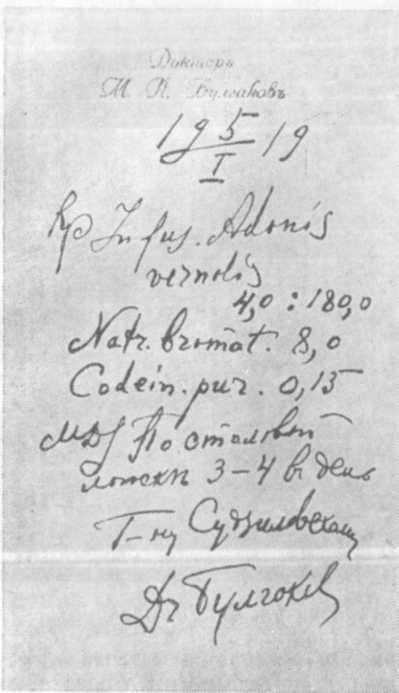 Докторъ
М. А. Булгаковъ
19 5/I 19
Rp Infus. Adonis
vernalis
4,0 : 180,0
Natr. bromat. 8,0
Codein. pur. 0,15
MDS По столовой
ложки 3–4 в день
Г-ну Судзиловскому
Dr Булгаков